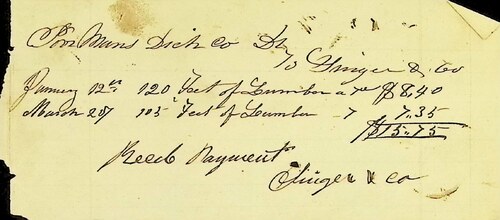 Poor Mans Dich Co Dr
To Singer & Co
January 12th 120 Feet of Lumber a 7c $8.40
March 20 105 Feet of Lumber 7 7.35
$15.75
Recd Payment
Singer & Co